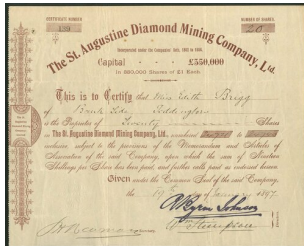 CERTIFICATE NUMBER
NUMBER OF SHARES
20
The St. Augustine Diamond Mining Company, Ltd.
Incorporated under the Companies Acts, 1862 to 1890.
Capital £550,000
In 550,000 Shares of £1 Each.
This is to Certify that Miss Edith Brigg
of Bank Side
is the Proprietor of Twenty Shares
in The St. Augustine Diamond Mining Company, Ltd., numbered to
inclusive, subject to the provisions of the Memorandum and Articles of
Association of the said Company, upon which the sum of
Shillings per Share has been paid, and further calls paid as endorsed hereon.
Given under the Common Seal of the said Company,
the 19th of January 1897.